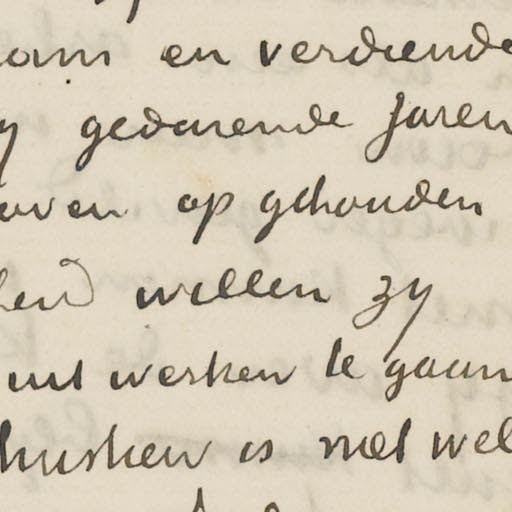 en verdiende
gedurende jaren
boven op gehouden
willen zy
uit werken te gaan
huishen is niet wel